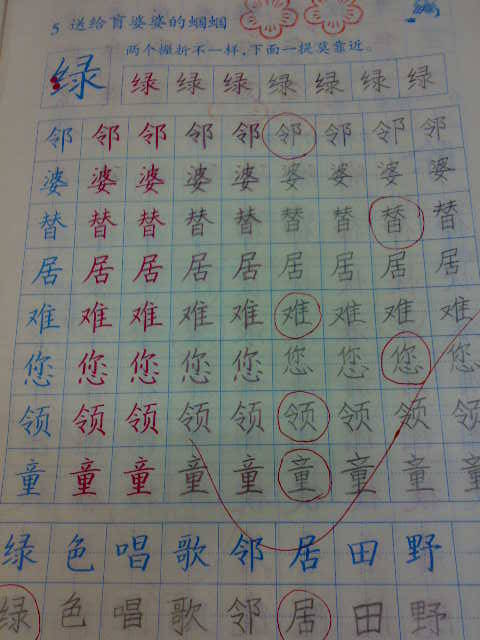 5 送给盲婆婆的蝈蝈
两个撇折不一样，下面一提莫靠近。
绿 绿 绿 绿 绿 绿 绿 绿
邻 邻 邻 邻 邻 邻 邻 邻 邻
婆 婆 婆 婆 婆 婆 婆 婆 婆
替 替 替 替 替 替 替 替 替
居 居 居 居 居 居 居 居 居
难 难 难 难 难 难 难 难 难
您 您 您 您 您 您 您 您 您
领 领 领 领 领 领 领 领 领
童 童 童 童 童 童 童 童 童
绿 色 唱 歌 邻 居 田 野
绿 色 唱 歌 邻 居 田 野